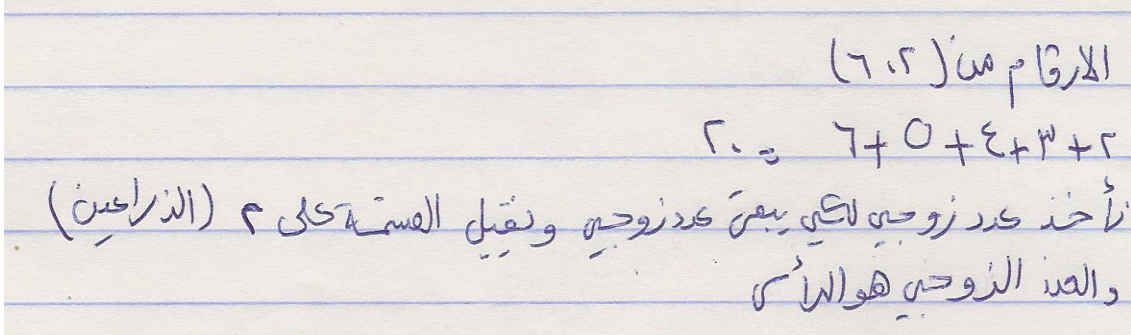 الارقام من (٢، ٦)
٢+٣+٤+٥+٦ = ٢٠
نأخذ عدد زوجي لكي يبقى عدد زوجي ويقبل القسمة على ٢ (الذراعين)
والعدد الزوجي هو الرأس